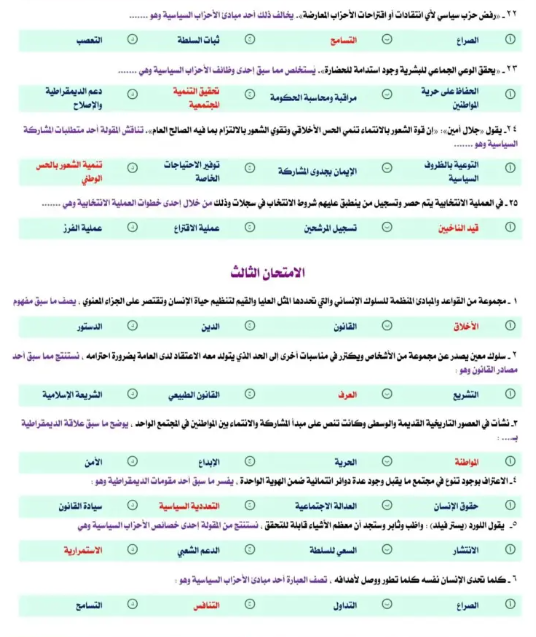 ٢٢ ـ «رفض حزب سياسي لأي انتقادات أو اقتراحات الأحزاب المعارضة». يخالف ذلك أحد مبادئ الأحزاب السياسية وهو .......
أ الصراع ب التسامح ج ثبات السلطة د التعصب
٢٣ ـ «يحقق الوعي الجماعي للبشرية وجود استدامة للحضارة». يستخلص مما سبق إحدى وظائف الأحزاب السياسية وهي .......
أ الحفاظ على حرية المواطنين ب مراقبة ومحاسبة الحكومة ج تحقيق التنمية المجتمعية د دعم الديمقراطية والإصلاح
٢٤ـ يقول «جلال أمين»: «إن قوة الشعور بالانتماء تنمي الحس الأخلاقي وتقوي الشعور بالالتزام بما فيه الصالح العام». تناقش المقولة أحد متطلبات المشاركة
السياسية وهو .......
أ التوعية بالظروف السياسية ب الإيمان بجدوى المشاركة ج توفير الاحتياجات الخاصة د تنمية الشعور بالحس الوطني
٢٥ ـ في العملية الانتخابية يتم حصر وتسجيل من ينطبق عليهم شروط الانتخاب في سجلات وذلك من خلال إحدى خطوات العملية الانتخابية وهي .......
أ قيد الناخبين ب تسجيل المرشحين ج عملية الاقتراع د عملية الفرز
الامتحان الثالث
١ ـ مجموعة من القواعد والمبادئ المنظمة للسلوك الإنساني والتي تحددها المثل العليا والقيم لتنظيم حياة الإنسان وتقتصر على الجزاء المعنوي . يصف ما سبق مفهوم
أ الأخلاق ب القانون ج الدين د الدستور
٢ ـ سلوك معين يصدر عن مجموعة من الأشخاص ويتكرر في مناسبات أخرى إلى الحد الذي يتولد معه الاعتقاد لدى العامة بضرورة احترامه . نستنتج مما سبق أحد
مصادر القانون وهو :
أ التشريع ب العرف ج القانون الطبيعي د الشريعة الإسلامية
٣ـ نشأت في العصور التاريخية القديمة والوسطى وكانت تنص على مبدأ المشاركة والانتماء بين المواطنين في المجتمع الواحد . يوضح ما سبق علاقة الديمقراطية
بـ.... :
أ المواطنة ب الحرية ج الإبداع د الأمن
٤ـ الاعتراف بوجود تنوع في مجتمع ما يقبل وجود عدة دوائر انتمائية ضمن الهوية الواحدة . يفسر ما سبق أحد مقومات الديمقراطية وهو :
أ حقوق الإنسان ب العدالة الاجتماعية ج التعددية السياسية د سيادة القانون
٥ـ يقول اللورد (يستر فيلد) : واظب وثابر وستجد أن معظم الأشياء قابلة للتحقق . نستنتج من المقولة إحدى خصائص الأحزاب السياسية وهي
أ الانتشار ب السعي للسلطة ج الدعم الشعبي د الاستمرارية
٦ ـ كلما تحدى الإنسان نفسه كلما تطور ووصل لأهدافه . تصف العبارة أحد مبادئ الأحزاب السياسية وهو :
أ الصراع ب التداول ج التنافس د التسامح